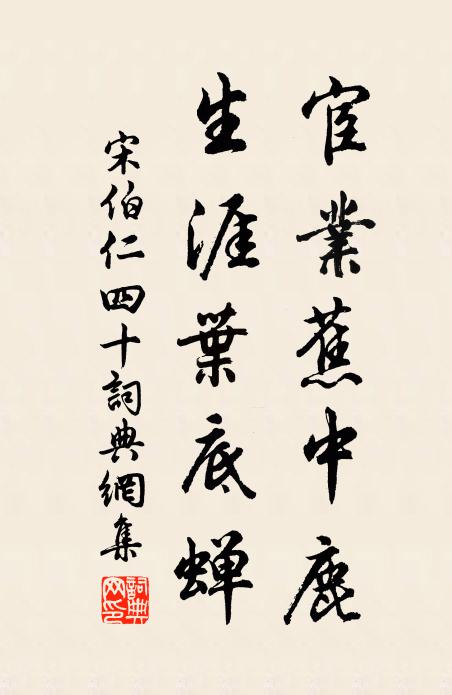 宦業蕉中鹿
生涯葉底蝉
宋伯仁四十詞典網集
詞典网印